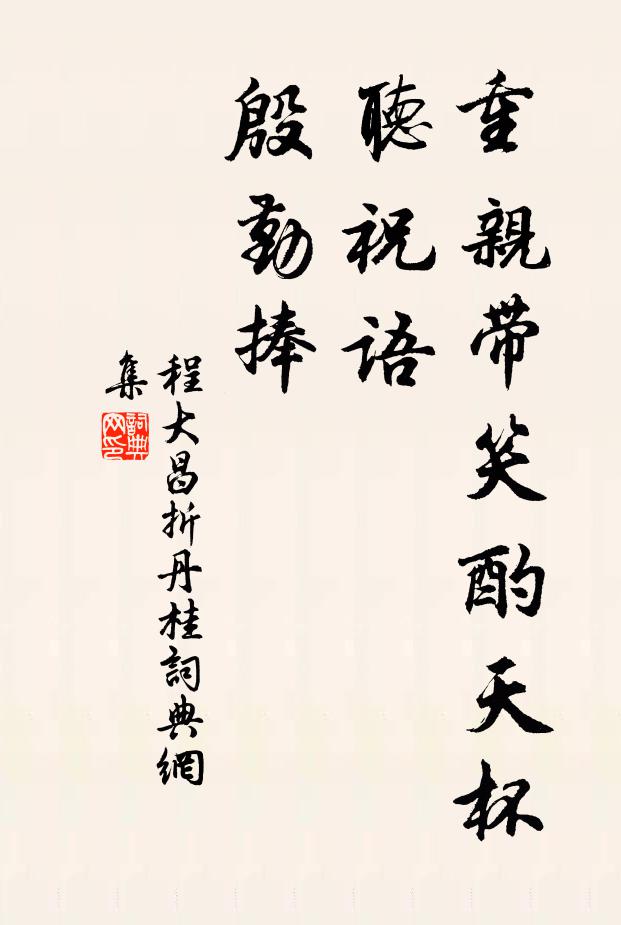 重親帶笑酌天杯
聽祝語
殷勤捧
程大昌折丹桂詞典網
集
詞典
网印